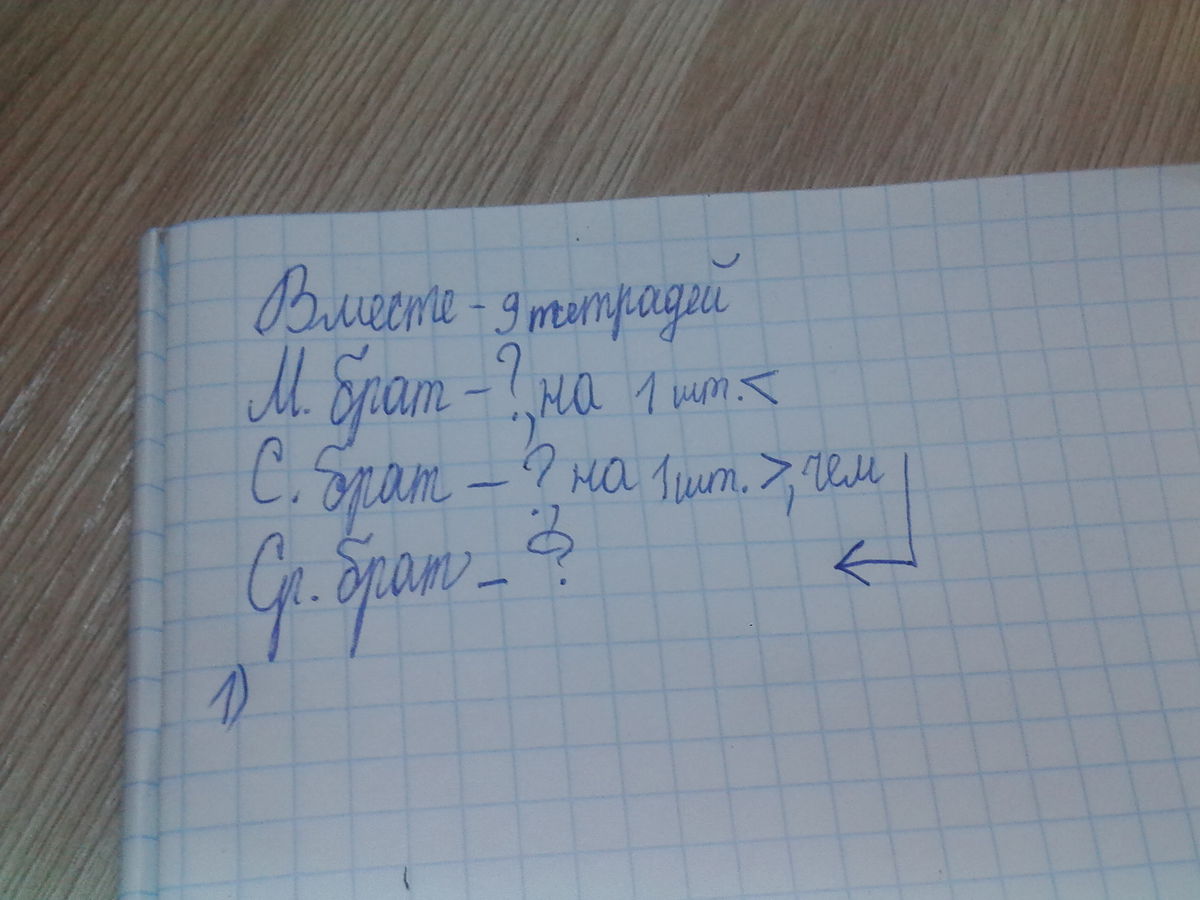 Вместе - 9 тетрадей
М. брат - ?, на 1 шт. <
С. брат - ? на 1 шт. >, чем
Ср. брат - ?
1)